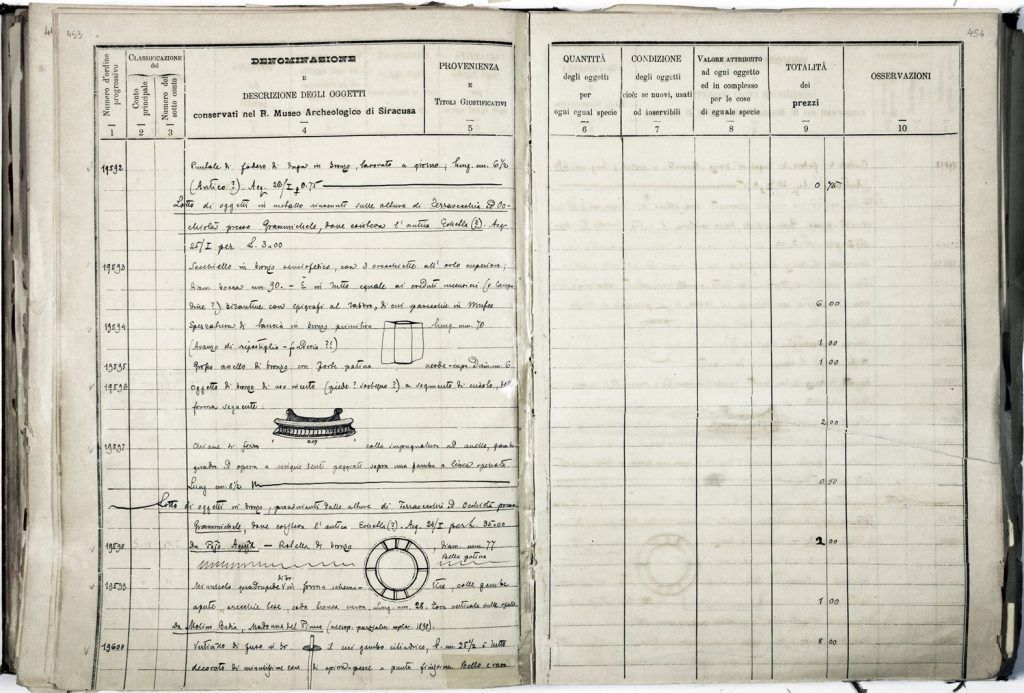 453
Numero d'ordine progressivo
CLASSIFICAZIONE del
Conto principale
Numero del sotto conto
DENOMINAZIONE
E
DESCRIZIONE DEGLI OGGETTI
conservati nel R. Museo Archeologico di Siracusa
PROVENIENZA
E
TITOLI GIUSTIFICATIVI
1 2 3 4 5
19592 di fodero di in bronzo, lavorato a giorno; lung. cm. 6 1/2
(Antico?). Acq. 20/I 0.75
Lotto di oggetti in metallo rinvenuti sulle alture di Terravecchia ed Oc-
chiolà presso Grammichele, dove esisteva l'antica Echetla (?). Acq.
25/I per L. 3=00
19593 Secchiello in bronzo emisferico, con 3 orecchiette all'orlo superiore;
diam. bocca mm 90. - È in tutto eguale ai creduti (o lampa-
dine?) bizantine con epigrafi al, di cui parecchie in Museo
19594 di lancia in bronzo primitiva lung. mm. 70
(Avanzo di ripostiglio - fonderia?!)
19595 Grosso anello di bronzo con forte patina verde-cupa. Diam. 6
19596 Oggetto di bronzo di uso incerto (piede? sostegno?) a segmento di circolo, del
forma seguente:
19597 Chiave di ferro colla impugnatura ad anello,
ed opera a cinque denti poggiati sopra una gamba a linea spezzata.
Lung. cm 6 1/2
Lotto di oggetti in bronzo, provenienti dalle alture di Terravecchia ed Occhiolà presso
Grammichele, dove esisteva l'antica Echetla (?). Acq. 24/I per L. 35=00
19598 Da - Rotella di bronzo, diam. mm. 77
Bella patina
19599 Minuscolo quadrupede br. in forma schema- tica, colle gambe
aperte, orecchie tese, coda lunga curva, Lung. mm. 28. verticale sulle spalle
Da Molino Badia, Madonna del Piano (necrop. parzialm. esplor. 1898).
19600 di fuso in br. I cui gambo cilindrico, l. mm. 25 1/2 è tutto
decorato di minutissime zone di spina-pesce a punta finissima. Bello e raro
454
QUANTITÀ
degli oggetti
per
ogni egual specie
CONDIZIONE
degli oggetti
cioè: se nuovi, usati
od inservibili
VALORE ATTRIBUITO
ad ogni oggetto
ed in complesso
per le cose
di eguale specie
TOTALITÀ
dei
prezzi
OSSERVAZIONI
6 7 8 9 10
0 75
6 00
1 00
1 00
2 00
0 50
2 00
7 00
8 00